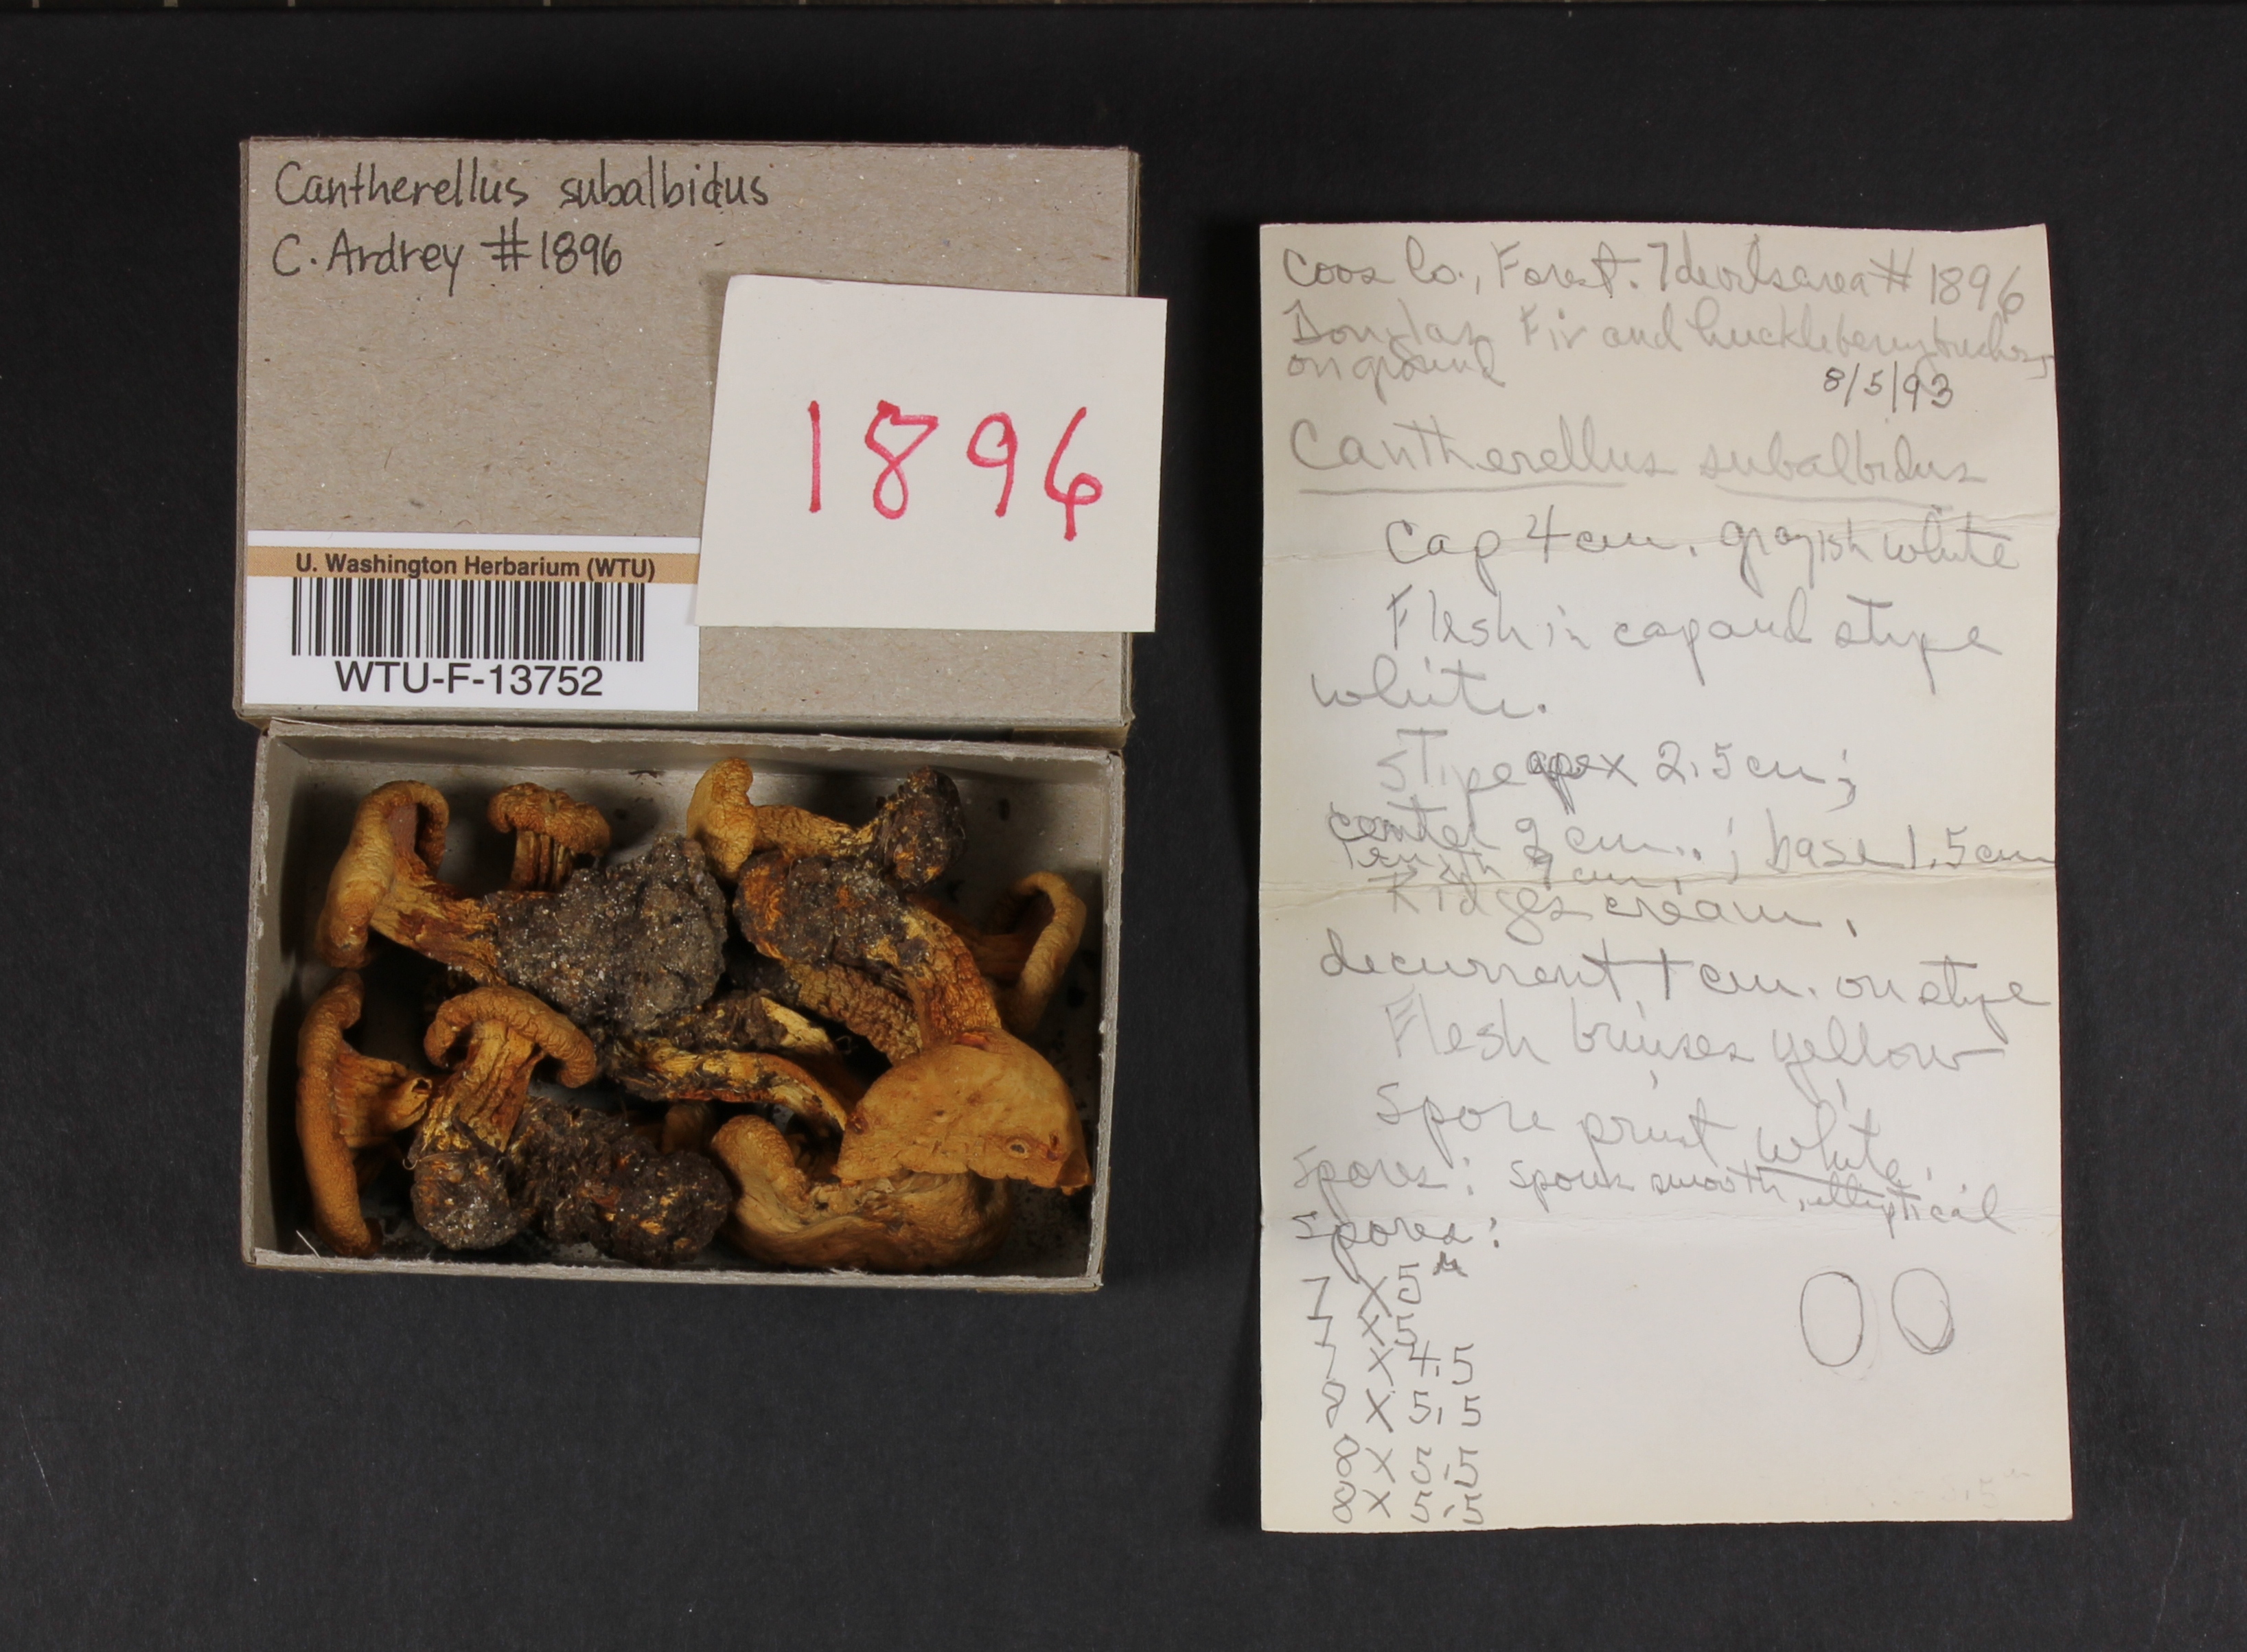 Cantherellus subalbidus
C. Ardrey #1896
1896
U. Washington Herbarium (WTU)
WTU-F-13752
Coos Co., Forest. 7 devils area # 1896
Douglas Fir and huckleberry bushes
on ground
8/5/93
Cantherellus subalbidus
Cap 4 cm. grayish white
Flesh in cap and stipe
white.
Stipe apex 2.5 cm;
center 2 cm..; base 1.5 cm
length 9 cm.
Ridges cream.
decurrent 1 cm. on stipe
Flesh bruises yellow
Spore print white.
Spores: spores smooth, elliptical
Spores:
7 X 5 µ
7 X 5
7 X 4.5
8 X 5.5
8 X 5.5
8 X 5.5